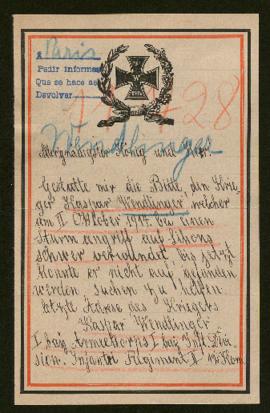 A Paris
Pedir informes
Que se hace así
Devolver
28
Wendlinger
Allergnädigster König und Herr.
Gestatte mir die Bitte, den Krie-
ger Kaspar Wendlinger welcher
am II Oktober 1914 bei einen
Sturmangriff auf
schwer verwundet bis jetzt
konnte er nicht aufgefunden
werden suchen zu helfen
letzte Adresse des Kriegers
Kaspar Wendlinger
I bay Armeekorps I bay Inft Divi-
sion. Infantri Regiment II 12 Kom.